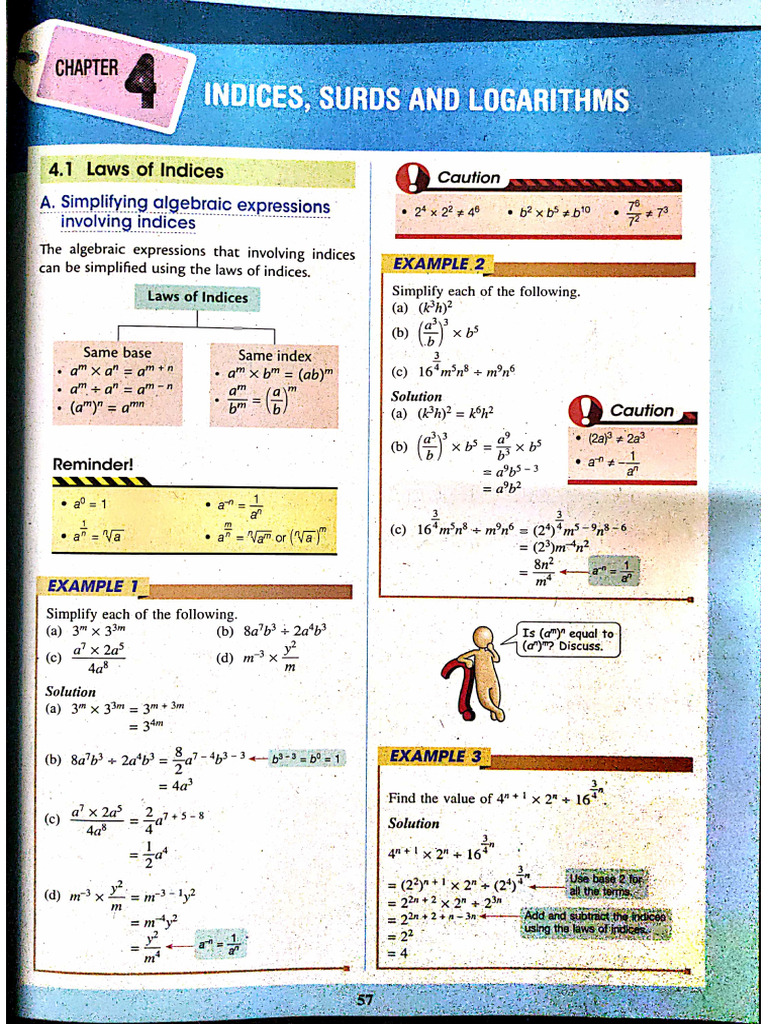 CHAPTER 4
INDICES, SURDS AND LOGARITHMS
4.1 Laws of Indices
A. Simplifying algebraic expressions
involving indices
The algebraic expressions that involving indices
can be simplified using the laws of indices.
Laws of Indices
Same base
• aᵐ × aⁿ = aᵐ ⁺ ⁿ
• aᵐ ÷ aⁿ = aᵐ ⁻ ⁿ
• (aᵐ)ⁿ = aᵐⁿ
Same index
• aᵐ × bᵐ = (ab)ᵐ
• aᵐ/bᵐ = (a/b)ᵐ
Reminder!
• a⁰ = 1
• a⁻ⁿ = 1/aⁿ
• a^(1/n) = ⁿ√a
• a^(m/n) = ⁿ√aᵐ or (ⁿ√a)ᵐ
EXAMPLE 1
Simplify each of the following.
(a) 3ᵐ × 3³ᵐ (b) 8a⁷b³ ÷ 2a⁴b³
(c) (a⁷ × 2a⁵)/4a⁸ (d) m⁻³ × y²/m
Solution
(a) 3ᵐ × 3³ᵐ = 3ᵐ ⁺ ³ᵐ
= 3⁴ᵐ
(b) 8a⁷b³ ÷ 2a⁴b³ = 8/2 a⁷ ⁻ ⁴b³ ⁻ ³
b³ ⁻ ³ = b⁰ = 1
= 4a³
(c) (a⁷ × 2a⁵)/4a⁸ = 2/4 a⁷ ⁺ ⁵ ⁻ ⁸
= 1/2 a⁴
(d) m⁻³ × y²/m = m⁻³ ⁻ ¹y²
= m⁻⁴y²
= y²/m⁴
a⁻ⁿ = 1/aⁿ
Caution
• 2⁴ × 2² ≠ 4⁶ • b² × b⁵ ≠ b¹⁰ • 7⁶/7² ≠ 7³
EXAMPLE 2
Simplify each of the following.
(a) (k³h)²
(b) (a³/b)³ × b⁵
(c) 16^(3/4) m⁵n⁸ ÷ m⁹n⁶
Solution
(a) (k³h)² = k⁶h²
(b) (a³/b)³ × b⁵ = a⁹/b³ × b⁵
= a⁹b⁵ ⁻ ³
= a⁹b²
Caution
• (2a)³ ≠ 2a³
• a⁻ⁿ ≠ -1/aⁿ
(c) 16^(3/4) m⁵n⁸ ÷ m⁹n⁶ = (2⁴)^(3/4) m⁵ ⁻ ⁹n⁸ ⁻ ⁶
= (2³)m⁻⁴n²
= 8n²/m⁴
a⁻ⁿ = 1/aⁿ
Is (aᵐ)ⁿ equal to
(aⁿ)ᵐ? Discuss.
EXAMPLE 3
Find the value of 4ⁿ ⁺ ¹ × 2ⁿ ÷ 16^(3/4 n).
Solution
4ⁿ ⁺ ¹ × 2ⁿ ÷ 16^(3/4 n)
= (2²)ⁿ ⁺ ¹ × 2ⁿ ÷ (2⁴)^(3/4 n)
Use base 2 for
all the terms.
= 2²ⁿ ⁺ ² × 2ⁿ ÷ 2³ⁿ
= 2²ⁿ ⁺ ² ⁺ ⁿ ⁻ ³ⁿ
Add and subtract the indices
using the laws of indices.
= 2²
= 4
57